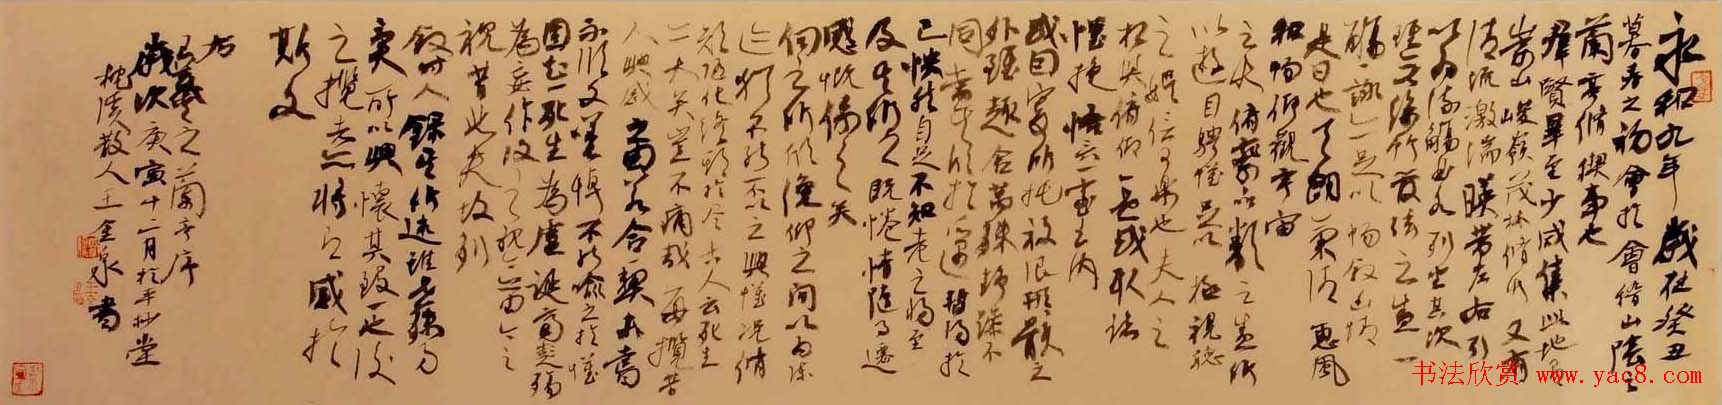 永和九年歲在癸丑
暮春之初會於會稽山陰之
蘭亭脩禊事也
羣賢畢至少長咸集此地有
崇山峻嶺茂林脩竹又有
清流激湍暎帶左右引
以為流觴曲水列坐其次
雖無絲竹管絃之盛一
觴一詠亦足以暢敘幽情
是日也天朗氣清惠風
和暢仰觀宇宙
之大俯察品類之盛所
以遊目騁懷足以極視聽
之娛信可樂也夫人之
相與俯仰一世或取諸
懷抱悟言一室之內
或因寄所託放浪形骸之
外雖趣舍萬殊靜躁不
同當其欣於所遇暫得於
己快然自足不知老之將至
及其所之既惓情隨事遷
感慨係之矣
向之所欣俛仰之間以為陳
迹猶不能不以之興懷況脩
短隨化終期於盡古人云死生
亦大矣豈不痛哉每攬昔
人興感之由若合一契未嘗
不臨文嗟悼不能喻之於懷
固知一死生為虛誕齊彭殤
為妄作後之視今亦由今之
視昔悲夫故列
敘時人錄其所述雖世殊事
異所以興懷其致一也後
之攬者亦將有感於
斯文
右
王羲之蘭亭序
歲次庚寅十二月於平抄堂
散人王金泉書
书法欣赏 www.yac8.com